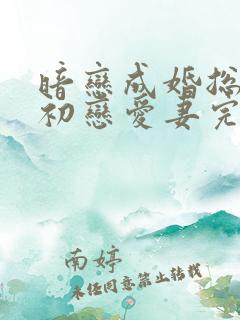 暗戀成婚總
初戀愛妻完
南婷
未经同意禁止转载